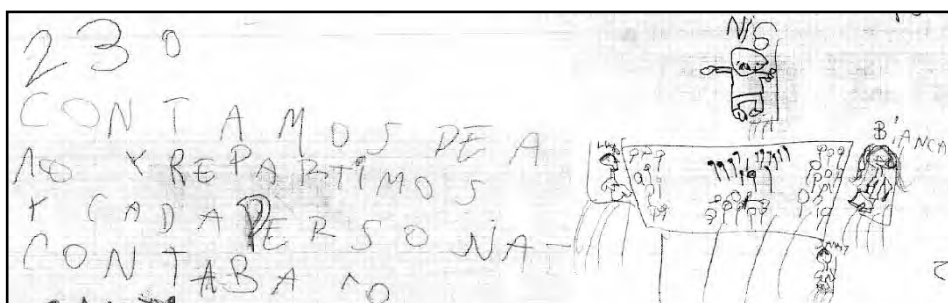 230
CONTAMOS DE A
10 Y REPARTIMOS
Y CADA PERSONA
CONTABA 10
NIC
BIANCA